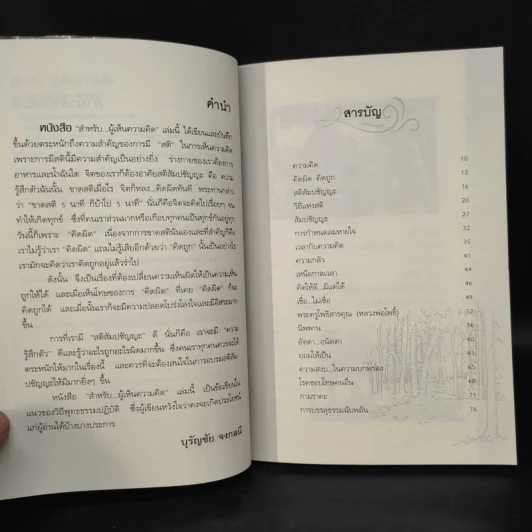 คำนำ
หนังสือ "สำหรับ...ผู้เห็นความคิด" เล่มนี้ ได้เขียนและบันทึก
ขึ้นด้วยตระหนักถึงความสำคัญของการมี "สติ" ในการเห็นความคิด
เพราะการมีสตินี้มีความสำคัญเป็นอย่างยิ่ง ร่างกายของเราต้องการ
อาหารและน้ำฉันใด จิตของเราก็ต้องอาศัยสติสัมปชัญญะ คือ ความ
รู้สึกตัวฉันนั้น ขาดสติเมื่อไร จิตก็หลง...คิดผิดทันที พระท่านกล่าว
ว่า "ขาดสติ ๕ นาที ก็บ้าไป ๕ นาที" นั่นก็คือจิตจะคิดไปเรื่อยๆ จน
ทำให้เกิดทุกข์ ซึ่งที่คนเราส่วนมากหรือเกือบทุกคนเป็นทุกข์กันอยู่ทุก
วันนี้ก็เพราะ "คิดผิด" เนื่องจากการขาดสตินั่นเองและที่สำคัญก็คือ
เราไม่รู้ว่าเรา "คิดผิด" แถมไม่รู้เสียอีกด้วยว่า "คิดถูก" นั้นเป็นอย่างไร
เรามักจะคิดว่าเราคิดถูกอยู่แล้วร่ำไป
ดังนั้น จึงเป็นเรื่องที่ต้องเปลี่ยนความเห็นผิดให้เป็นความเห็น
ถูกให้ได้ และเมื่อเห็นโทษของการ "คิดผิด" ที่เคย "คิดผิด" ก็จะ
คิดถูกได้ และเมื่อนั้นเราก็จะมีความปลอดโปร่งโล่งใจและมีอิสระมาก
ขึ้น
การที่เรามี "สติสัมปชัญญะ" ดี นั่นก็คือ เราจะมี "ความ
รู้สึกตัว" ดีและรู้ว่าอะไรถูกอะไรผิดมากขึ้น ซึ่งคนเราทุกคนควรจะได้
ตระหนักให้มากในเรื่องนี้ และควรที่จะต้องสนใจในการอบรมสติสัม
ปชัญญะให้มีมากยิ่งๆ ขึ้น
หนังสือ "สำหรับ...ผู้เห็นความคิด" เล่มนี้ เป็นข้อเขียนใน
แนวของวิถีพุทธธรรมปฏิบัติ ซึ่งผู้เขียนหวังใจว่าคงจะเกิดประโยชน์
แก่ผู้อ่านได้บ้างบางประการ
บุรัญชัย จงกลนี
สารบัญ
ความคิด 10
คิดผิด คิดถูก 16
สติสัมปชัญญะ 20
วิถีแห่งสติ 25
สัมปชัญญะ 27
การกำหนดลมหายใจ 32
เวลากับความคิด 35
ความกลัว 41
เหนือกาลเวลา 41
คิดให้ดี...มีแต่ได้ 44
เชื่อ...ไม่เชื่อ 46
พระครูโพธิสารคุณ (หลวงพ่อโพธิ์) 49
นิพพาน
อัตตา...อนัตตา
ยอมให้เป็น
ความสงบ...ในความบกพร่อง
โรคชอบโทษคนอื่น
กามราคะ
การบรรลุธรรมฉับพลัน 76